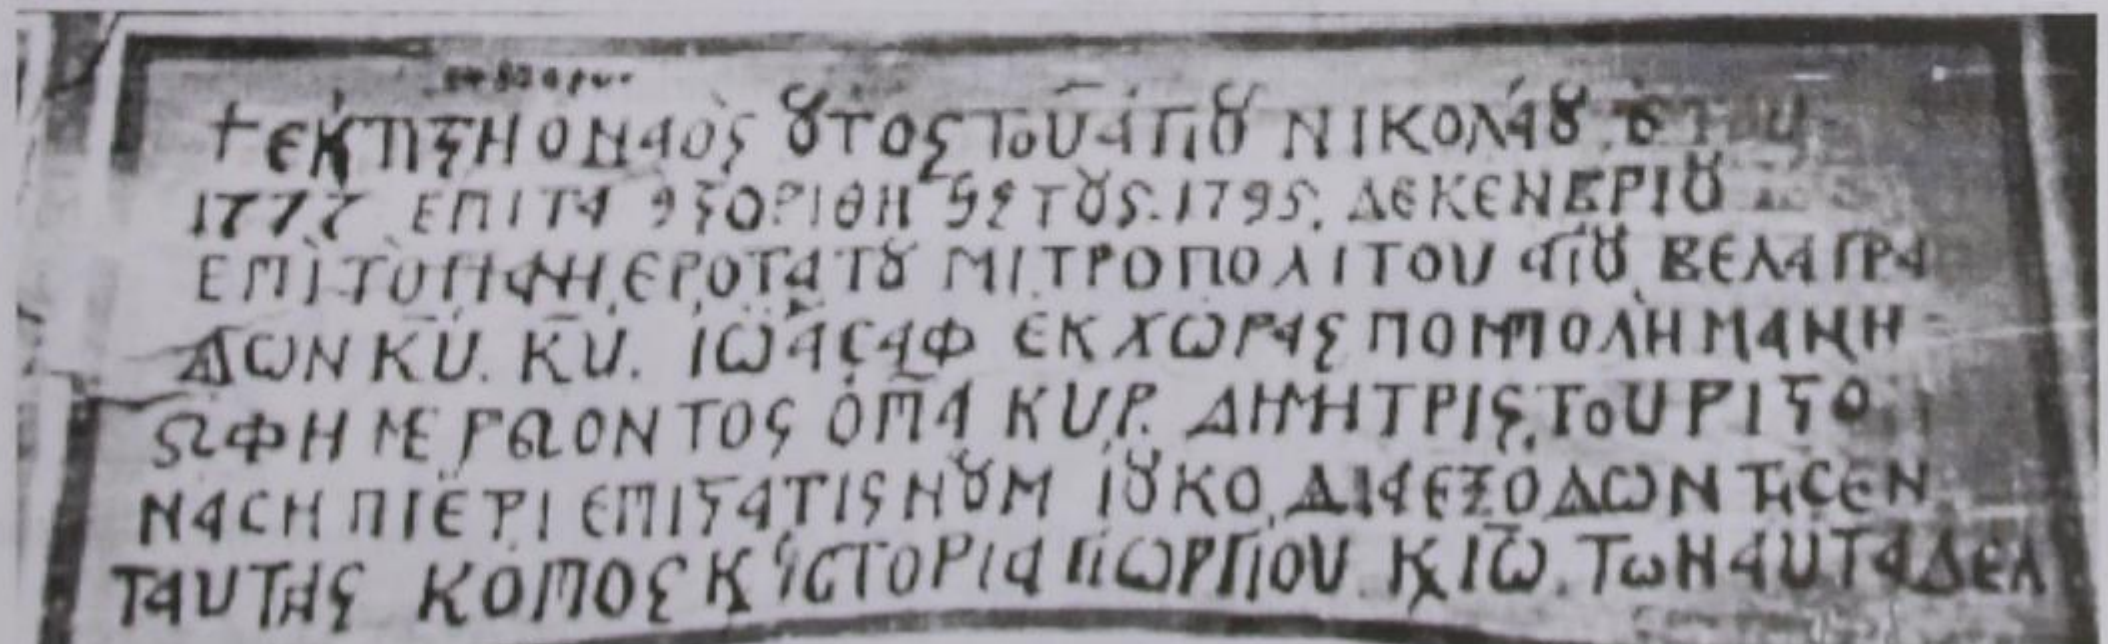 + ΕΚΤΙϚΗ Ο ΝΑΟς ȢΤΟς ΤΟΥ ΑΓΙȢ ΝΙΚΟΛΑȢ
1777 ΕΠΙΤΑ ΙϚΟΡΙΘΗ ΤȢς. 1795. ΔΕΚΕΝΒΡΙȢ
ΕΠΙ ΤΟΥ ΠΑΝΗΕΡΟΤΑΤȢ ΜΙΤΡΟΠΟΛΙΤΟΥ ΑΓΙȢ ΒΕΛΑΓΡΑ
ΔΩΝ ΚΥ. ΚΥ. ΙΩΑCΑΦ ΕΚ ΧΩΡΑς ΠΟΜΠΟΛΗ ΜΑΝΗ
ΩΦΗΜΕΡΩΟΝΤΟς ΟΠΑ ΚΥΡ. ΔΗΜΗΤΡΙς. ΤΟΥ ΡΙϚΟ
ΝΑCΗ ΠΙΕΤΡΙ ΕΠΙϚΑΤΙς ΝȢΜ ΙȢΚΟ. ΔΙΑ ΕΞΟΔΩΝ ΤΗC ΕΝ
ΤΑΥΤΗς ΚΟΠΟς Κ ΙCΤΟΡΙΑ ΓΙΩΡΓΙΟΥ Κ ΙΩ. ΤΩΝ ΑΥΤΑΔΕΛ